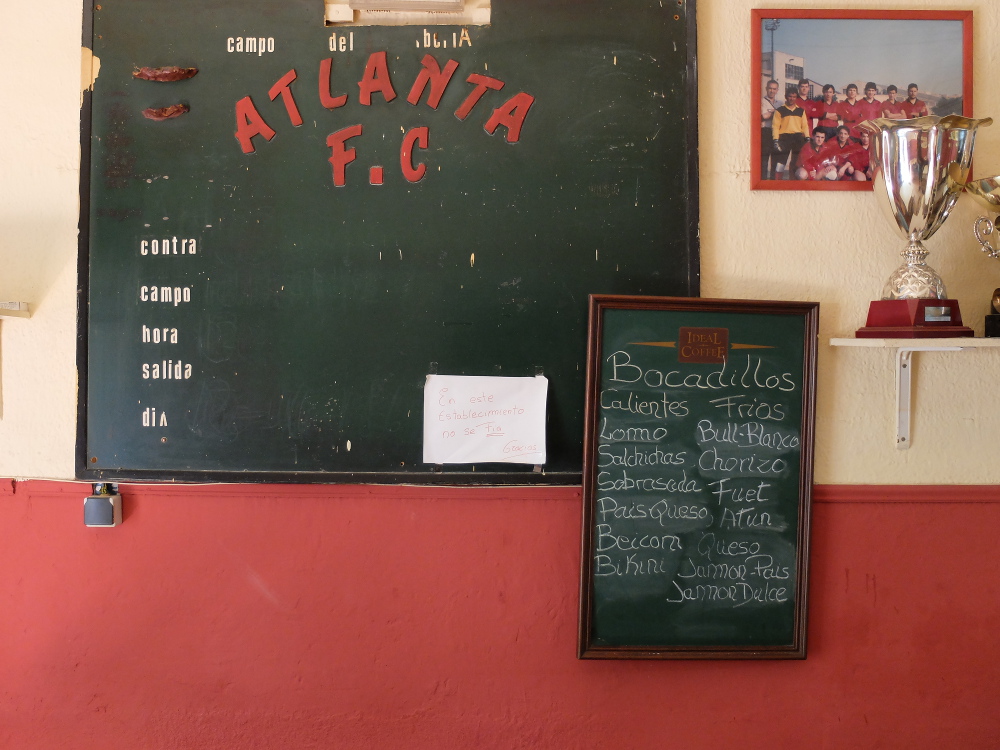 campo del iberiA
ATLANTA
F.C
contra
campo
hora
salida
diA
En este
Establecimiento
no se Fia
Gracias
IDEAL
COFFEE
Bocadillos
Calientes Frios
Lomo Bull-Blanco
Salchichas Chorizo
Sobrasada Fuet
Pais Queso Atun
Beicom Queso
BiKini Jammon-Pais
Jammon Dulce